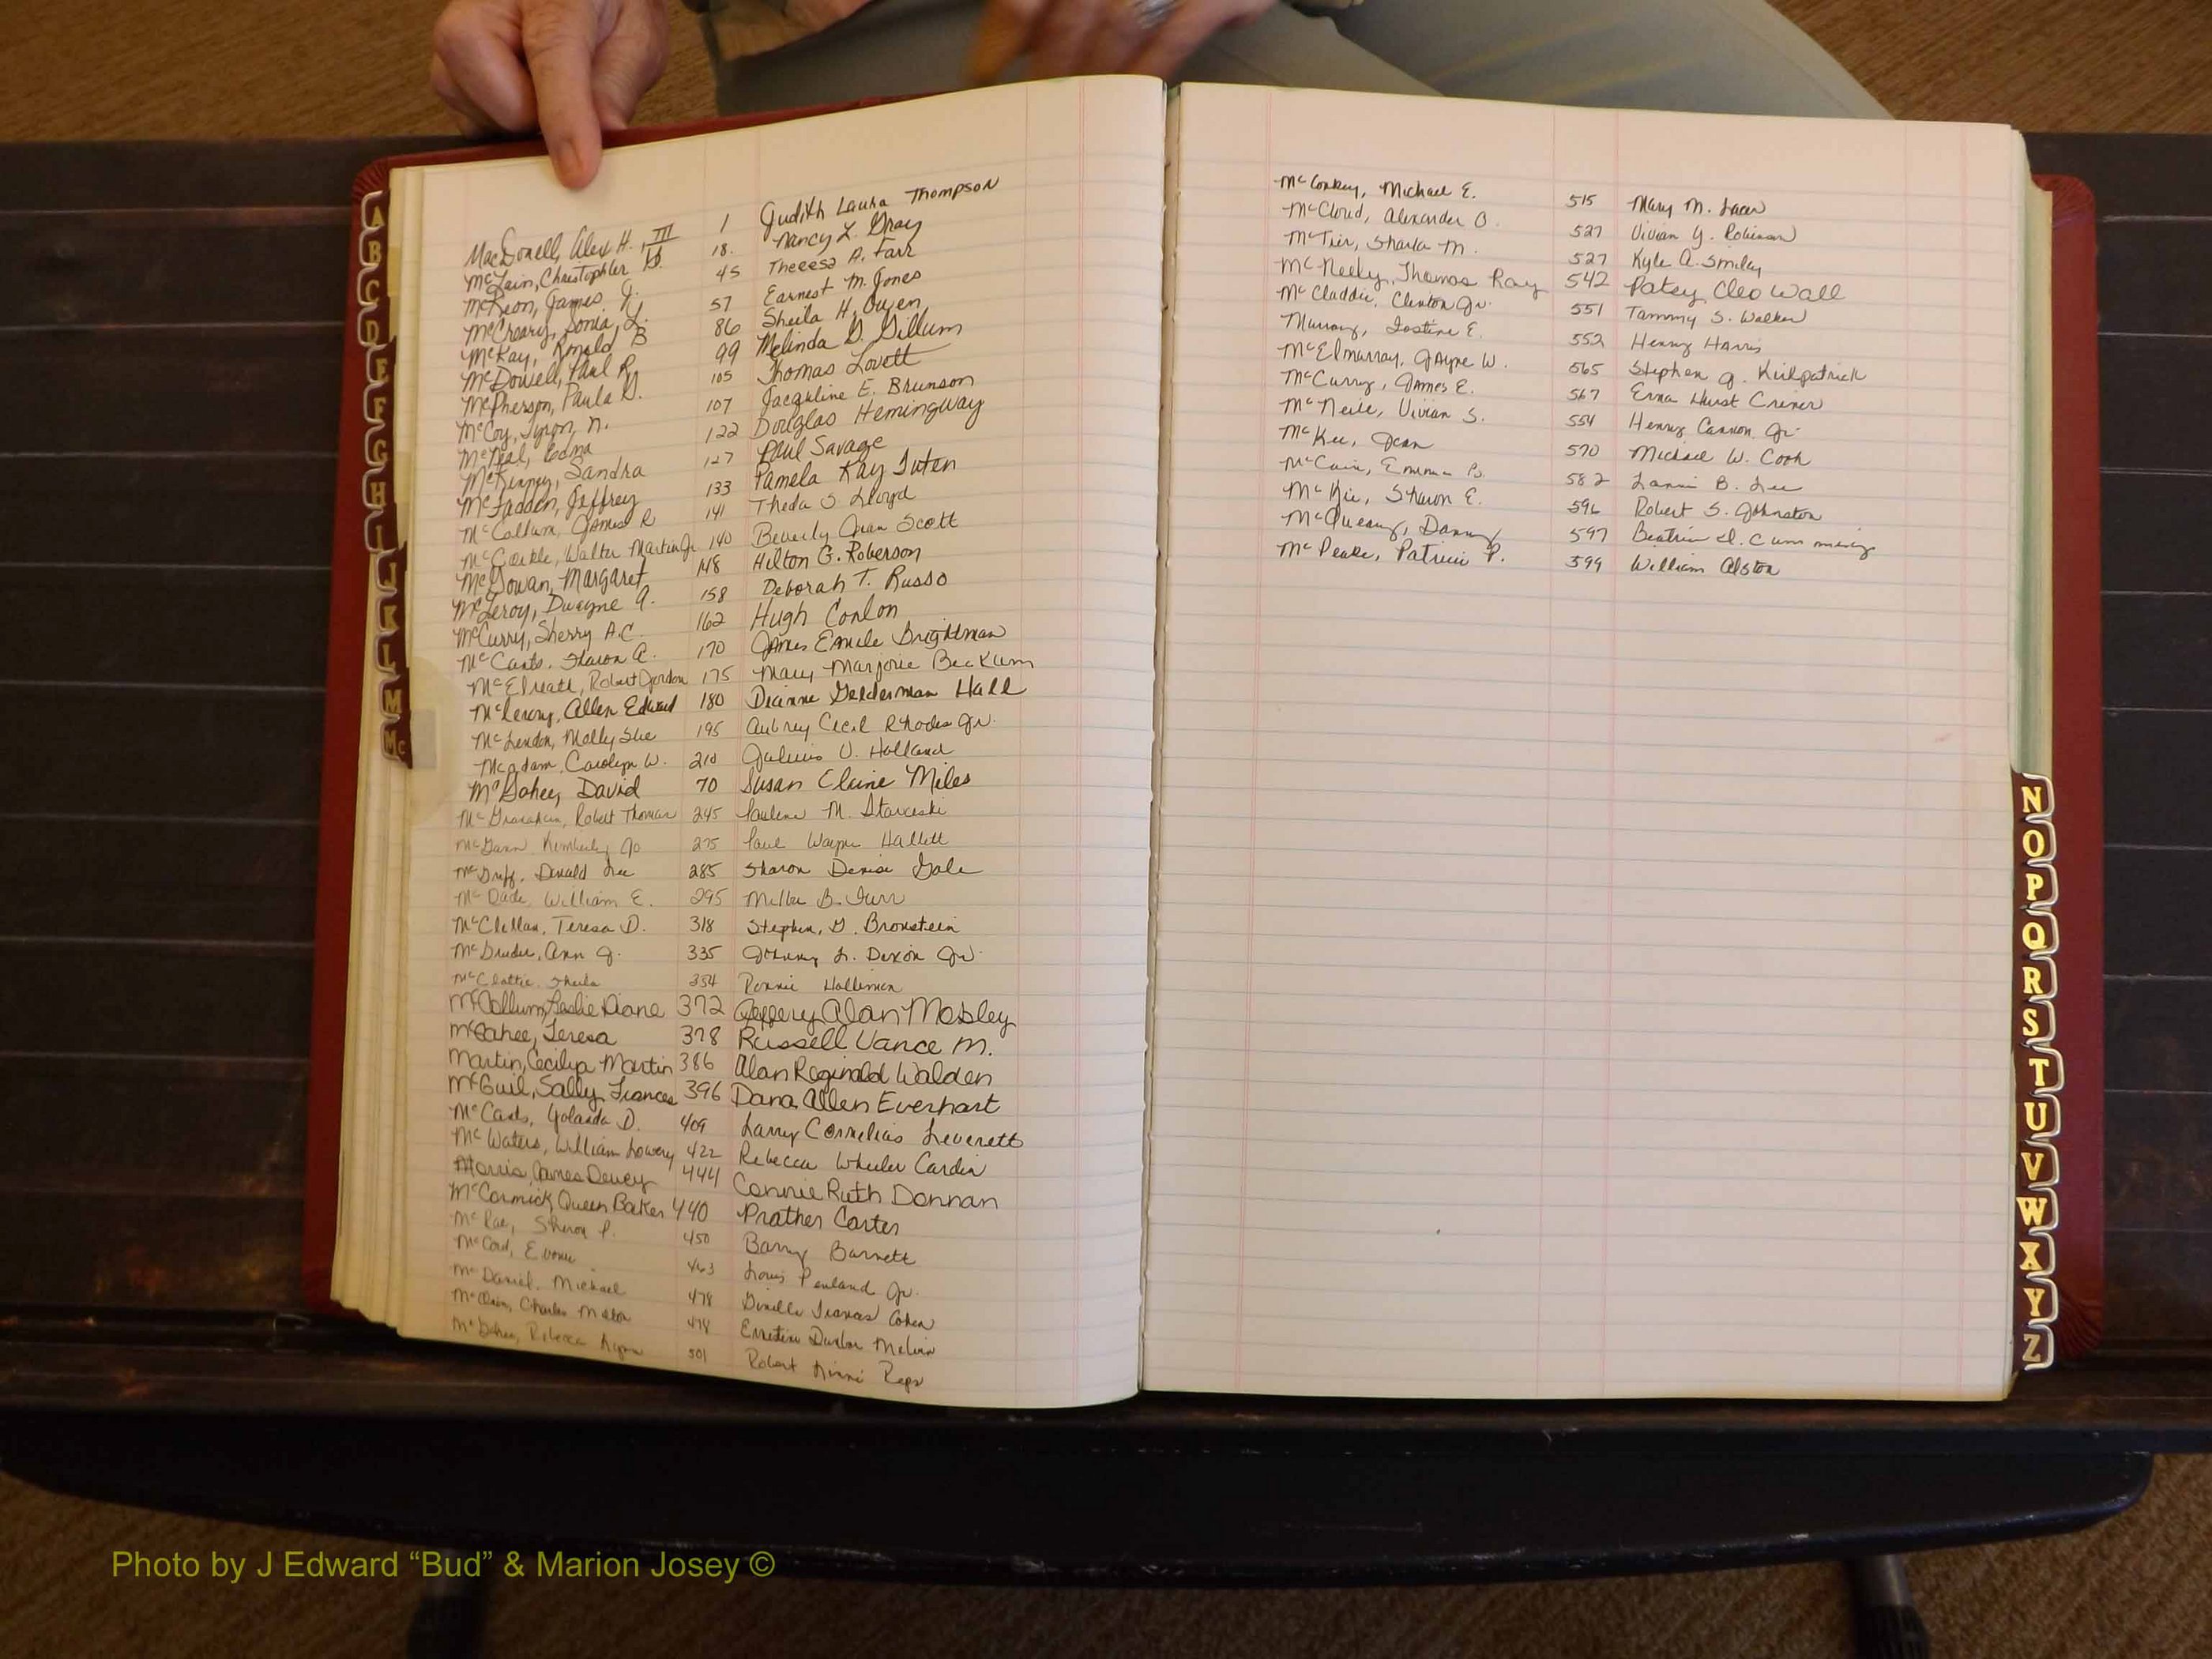 A
B
C
D
E
F
G
H
I
J
K
L
M
Mc
MacDonell, Alex H. III 1 Judith Laura Thompson
McLain, Christopher D. 18. Nancy L. Gray
McKeon, James J. 45 Theresa A. Farr
McCreary, Sonia L. 57 Earnest M. Jones
McKay, Ronald B 86 Sheila H. Owen
McDowell, Paul R. 99 Melinda D. Gillum
McPherson, Paula D. 105 Thomas Lovett
McCoy, Tyron, N. 107 Jacqueline E. Brunson
McNeal, Edna 122 Douglas Hemingway
McKinney, Sandra 127 Paul Savage
McFadden, Jeffrey 133 Pamela Kay Tuten
McCollum, James R 141 Theda S. Lloyd
McCorkle, Walter Martin Jr 140 Beverly Jean Scott
McGowan, Margaret 148 Hilton G. Roberson
McLeroy, Dwayne A. 158 Deborah T. Russo
McCurry, Sherry A.C. 162 Hugh Conlon
McCants, Sharon A. 170 James Emile Brightman
McElreath, Robert Gordon 175 Mary Marjorie Beckum
McLeroy, Allen Edward 180 Dianne Gelderman Hall
McLendon, Molly Sue 195 Aubrey Cecil Rhodes Jr.
McAdam, Carolyn W. 210 Julius U. Holland
McGahee, David 70 Susan Claire Miles
Robert Thomas 245 Pauline M.
McGann Kimberly Jo 275 Paul Wayne Hallett
McGriff, Donald Lee 285 Sharon Denise Gale
McDade, William E. 295 B.
McClellan, Teresa D. 318 Stephen, D. Bronstein
McGruder, Ann J. 335 Johnny L. Dixon Jr.
Sheila 354 Ronnie Holliman
McCollum, Leslie Diane 372 Jeffery Alan Mobley
McGahee, Teresa 378 Russell Vance M.
Martin, Cecilya Martin 386 Alan Reginald Walden
McGuil, Sally Frances 396 Dana Allen Everhart
McCants, Yolanda D. 409 Larry Cornelius Leverett
McWaters, William Lowery 422 Rebecca Wheeler Cardin
Morris, James Dewey 444 Connie Ruth Donnan
McCormick, Queen Baker 440 Prather Carter
McRae, Sharon P. 450 Barry Barnett
McCord, Evonne 463 Louis Penland Jr.
McDaniel, Michael 478 Frances Cohen
McClain, Charles Milton 478 Ernestine Dunbar Melvin
McGahee, Rebecca Lynn 501 Robert
McConkey, Michael E. 515 Mary M.
McCloud, Alexander O. 527 Vivian Y. Robinson
McTier, Sharla M. 527 Kyle A. Smiley
McNeely, Thomas Ray 542 Patsy Cleo Wall
McCladdie, Clinton Jr. 551 Tammy S. Walker
Murray, E. 552 Henry Harris
McElmurray, Jayne W. 565 Stephen J. Kirkpatrick
McCurry, James E. 567 Erna Hurst Crener
McNeile, Vivian S. 554 Henry Cannon Jr.
McKee, Jean 570 Michael W. Cook
McCain, Emma 582 B. Lee
McKie, Sharon E. 596 Robert S. Johnston
McQueary, Danny 597 Beatrice D. Cummings
McPeake, Patricia P. 599 William Alston
N
O
P
Q
R
S
T
U
V
W
X
Y
Z
Photo by J Edward “Bud” & Marion Josey ©